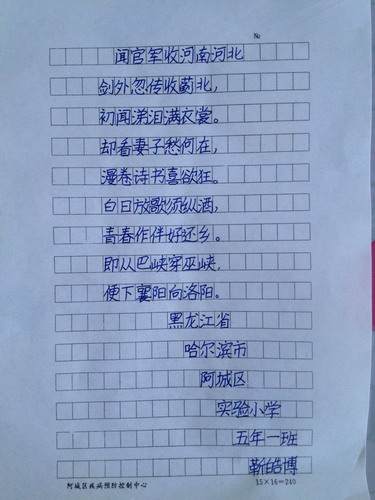 №
闻官军收河南河北
剑外忽传收蓟北，
初闻涕泪满衣裳。
却看妻子愁何在，
漫卷诗书喜欲狂。
白日放歌须纵酒，
青春作伴好还乡。
即从巴峡穿巫峡，
便下襄阳向洛阳。
黑龙江省
哈尔滨市
阿城区
实验小学
五年一班
靳皓博
阿城区疾病预防控制中心 15×16=240